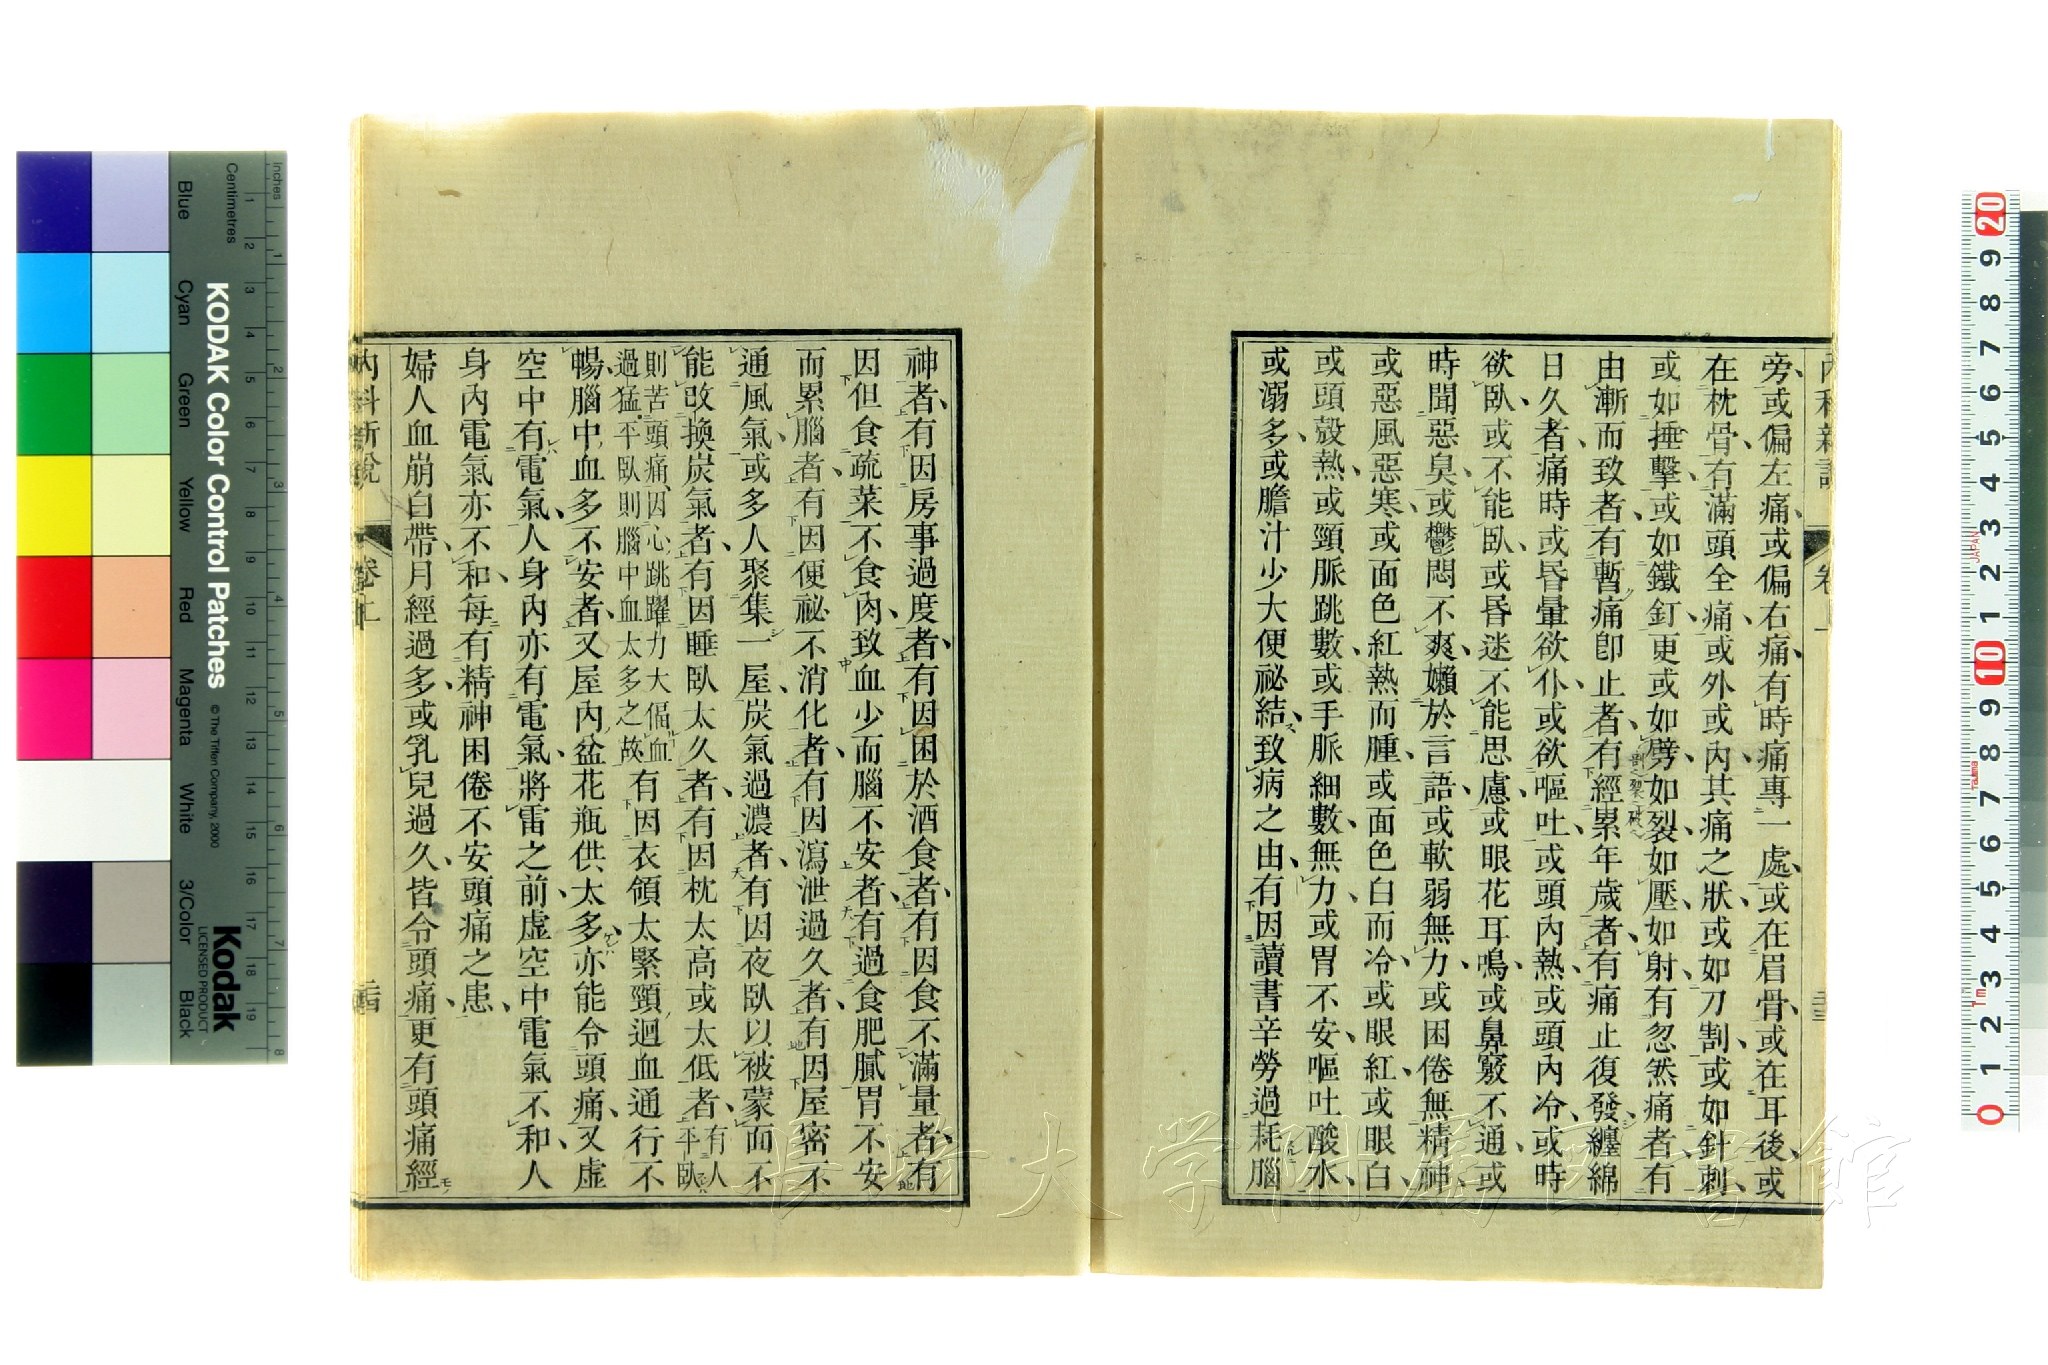 內科新說
卷上
旁、或偏左痛、或偏右痛、有時痛專一處、或在眉骨、或在耳後、或
在枕骨、有滿頭全痛、或外或內、其痛之狀、或如刀割、或如針刺、
或如捶擊、或如鐵釘、更或如劈如裂如壓如射、有忽然痛者、有
由漸而致者、有暫痛卽止者、有經累年歲者、有痛止復發纏綿
日久者、痛時或昏暈欲仆、或欲嘔吐、或頭內熱、或頭內冷、或時
欲臥、或不能臥、或昏迷不能思慮、或眼花耳鳴、或鼻竅不通、或
時聞惡臭、或鬱悶不爽、嬾於言語、或軟弱無力、或困倦無精神、
或惡風惡寒、或面色紅熱而腫、或面色白而冷、或眼紅、或眼白、
或頭殼熱、或頸脈跳數、或手脈細數、無力、或胃不安、嘔吐酸水、
或溺多、或膽汁少、大便祕結、致病之由、有因讀書辛勞過耗腦
神者、有因房事過度者、有因困於酒食者、有因食不滿量者、有
因但食疏菜不食肉、致血少而腦不安者、有過食肥膩胃不安
而累腦者、有因便祕不消化者、有因瀉泄過久者、有因屋密不
通風氣、或多人聚集一屋、炭氣過濃者、有因夜臥以被蒙面不
能改換炭氣者、有因睡臥太久者、有因枕太高或太低者、有人平臥
則苦頭痛、因心跳躍力大偪血
過猛、平臥則腦中血太多之故
有因衣領太緊、頸迴血通行不
暢、腦中血多不安者、又屋內盆花瓶供太多、亦能令頭痛、又虛
空中有電氣、人身內亦有電氣、將雷之前、虛空中電氣不和、人
身內電氣亦不和、每有精神困倦不安頭痛之患、
婦人血崩白帶、月經過多、或乳兒過久、皆令頭痛、更有頭痛經
內科新說
卷上
KODAK Color Control Patches
© The Tiffen Company, 2000
Kodak
LICENSED PRODUCT
Inches
Centimetres
Blue
Cyan
Green
Yellow
Red
Magenta
White
3/Color
Black
長崎大学附属図書館